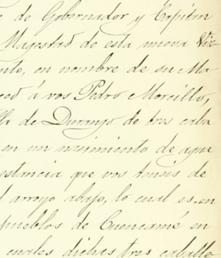 e de Gobernador y Capitan
Magestad de esta nueva Viz
nto, en nombre de su Ma
ced á vos Pedro Morcillo,
lla de Durango de tres caba
en un nacimiento de agua
estancia que vos teneis de
l arroyo abajo, lo cual es en
pueblos de Cuencamé en
cuales dichas tres caballe